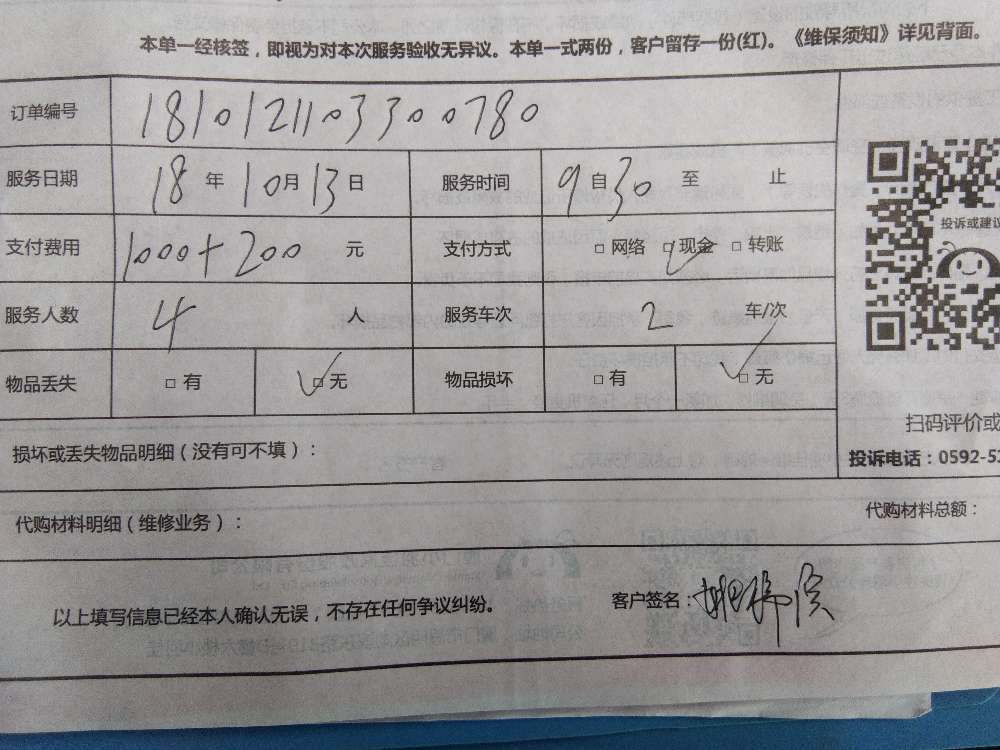 本单一经核签，即视为对本次服务验收无异议。本单一式两份，客户留存一份(红)。《维保须知》详见背面。
订单编号 181012110330 0780
服务日期 18 年 10月 13 日 服务时间 9 自 30 至 止
支付费用 1000+200 元 支付方式 □ 网络 □ 现金 □ 转账
服务人数 4 人 服务车次 2 车/次
物品丢失 □ 有 □ 无 物品损坏 □ 有 □ 无
投诉或建议
扫码评价或
投诉电话：0592-52
损坏或丢失物品明细（没有可不填）：
代购材料明细（维修业务）： 代购材料总额：
以上填写信息已经本人确认无误，不存在任何争议纠纷。 客户签名：